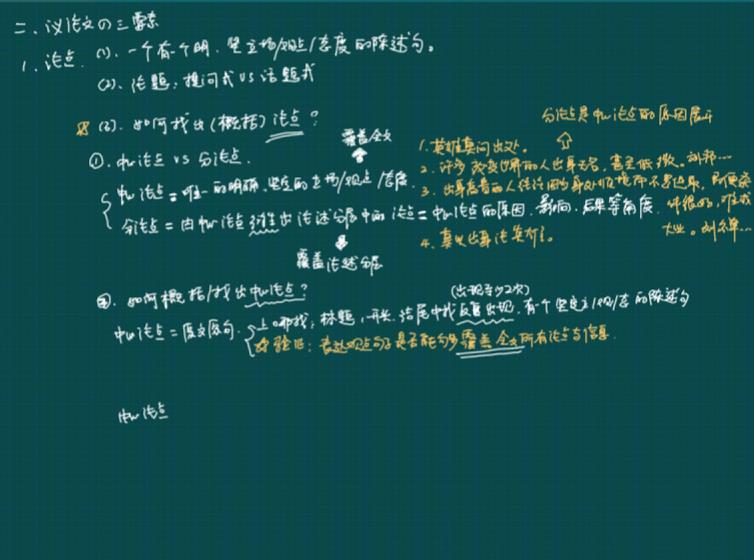 二、议论文の三要素
1. 论点 (1). 一个有一个明、坚立场/观点/态度的陈述句。
(2). 论题：提问式 VS 话题式
(3). 如何找出(概括)论点?
覆盖全文
①. 中心论点 VS 分论点.
中心论点 = 唯一的明确、坚定的立场/观点/态度.
分论点 = 由中心论点衍生出 论述分层中的 论点 = 中心论点的原因、影响、后果等角度.
覆盖论述分层
分论点是中心论点的原因展开
1. 英雄莫问出处。
2. 许多改变世界的人出身无名，甚至低微。刘邦...
3. 出身
4. 莫以出身论英雄。
②. 如何概括/找出中心论点?
(出现至少2次)
中心论点 = 原文原句. 上哪找：标题、开头、结尾中找反复出现、有一个坚定立/观/态的陈述句
验证：表达观点句子是否能够覆盖全文所有论点与信息.
中心论点